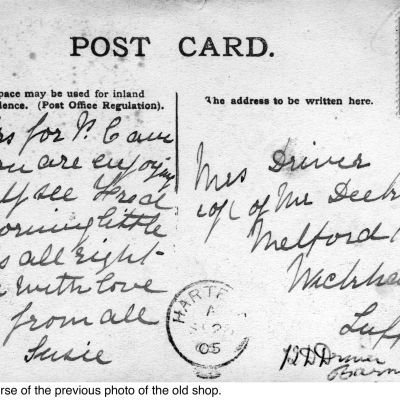 POST CARD.
pace may be used for inland
dence. (Post Office Regulation).
The address to be written here.
rs for P. C am
ou are enjoying
lf see Fred
orning little
s all right-
with love
from all
Susie
Mrs Driver
c/o of Mr
Melford
Suff
HARTF
A
05
rse of the previous photo of the old shop.